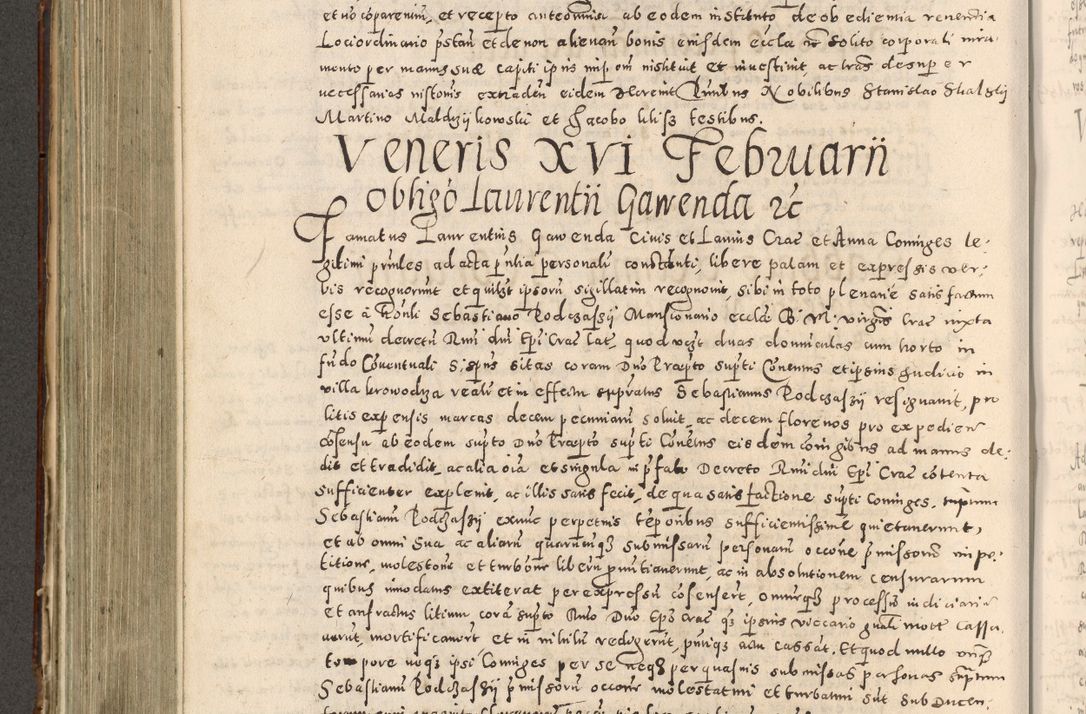 et no comparenim, et recepto anteomnia ab eodem instituto de ob edientia renendia
Loci ordinario pstan et de non alienan bonis eiusdem eccla solito corporali iura
mento per manus suæ capiti ipius imp om nistituit et investivit, ac tras desuper
necessarias extraden eidem Decrevit Pntibus Nobilibus Stanislao Skalskij
Martino Maldzijkowski et Jacobo testibus.
Veneris XVI Februarii
Obligo Laurentii Gawenda rc
Famatus Laurentius Gawenda Civis et Lanius Crac et Anna Coniuges le-
gitimi prnles ad acta pntia personali constituti, libere palam et expressis ver-
bis recognorunt et quilbt ipsoru sigillatim recognovit, sibi in toto plenarie satis factum
esse a Honli Sebastiano Rodczaszij Mansionario eccla B. M. virgis Crac iuxta
ultimu decretu Rmi dni Epi Crac lat, quod vczt duas domunculas cum horto in
fundo Conventuali sitas coram Dno Prapto supti Conentus et ipsius Judicio in
villa krowodza reali et in effectu supratus Sebastianus Rodczaszij resignavit, pro
litis expensis marcas decem pecuniaru soluit, ac decem florenos pro expedien
cosensu ab eodem supto Dno Prapto supti Conentus eisdem coniugibus ad manus de-
dit et tradidit, ac alia oia et singula in pfato Decreto Rmi dni Epi Crac cotenta
sufficienter explevit, ac illis satis fecit, de qua satisfactione supti Coniuges,
Sebastianu Rodczaszij exnunc perpetuis temporibus sufficientissime quietaverunt,
et ab omni sua ac aliaru quarumcunqz submissaru personaru occone pmissoru impe-
titione, molestone et turbone liberu pronuntiaverunt, ac in absolutionem censurarum
quibus innodatus extiterat per expressu cosensert, omnesqz processus iudiciarios
et anfractus litium cora supto Rmo Dno Epo Crac qz ipsius viccario gnali mott cassa-
verut, mortificavert et in nihilu redegerut, pntiqz actu cassat. Et quod nullo unqz
tempore ipsi Coniuges per se neqz per quasuis submissas personas suptum
Sebastianu Rodczaszij pmissoru occone molestaturi et turbaturi sut sub Ducen.